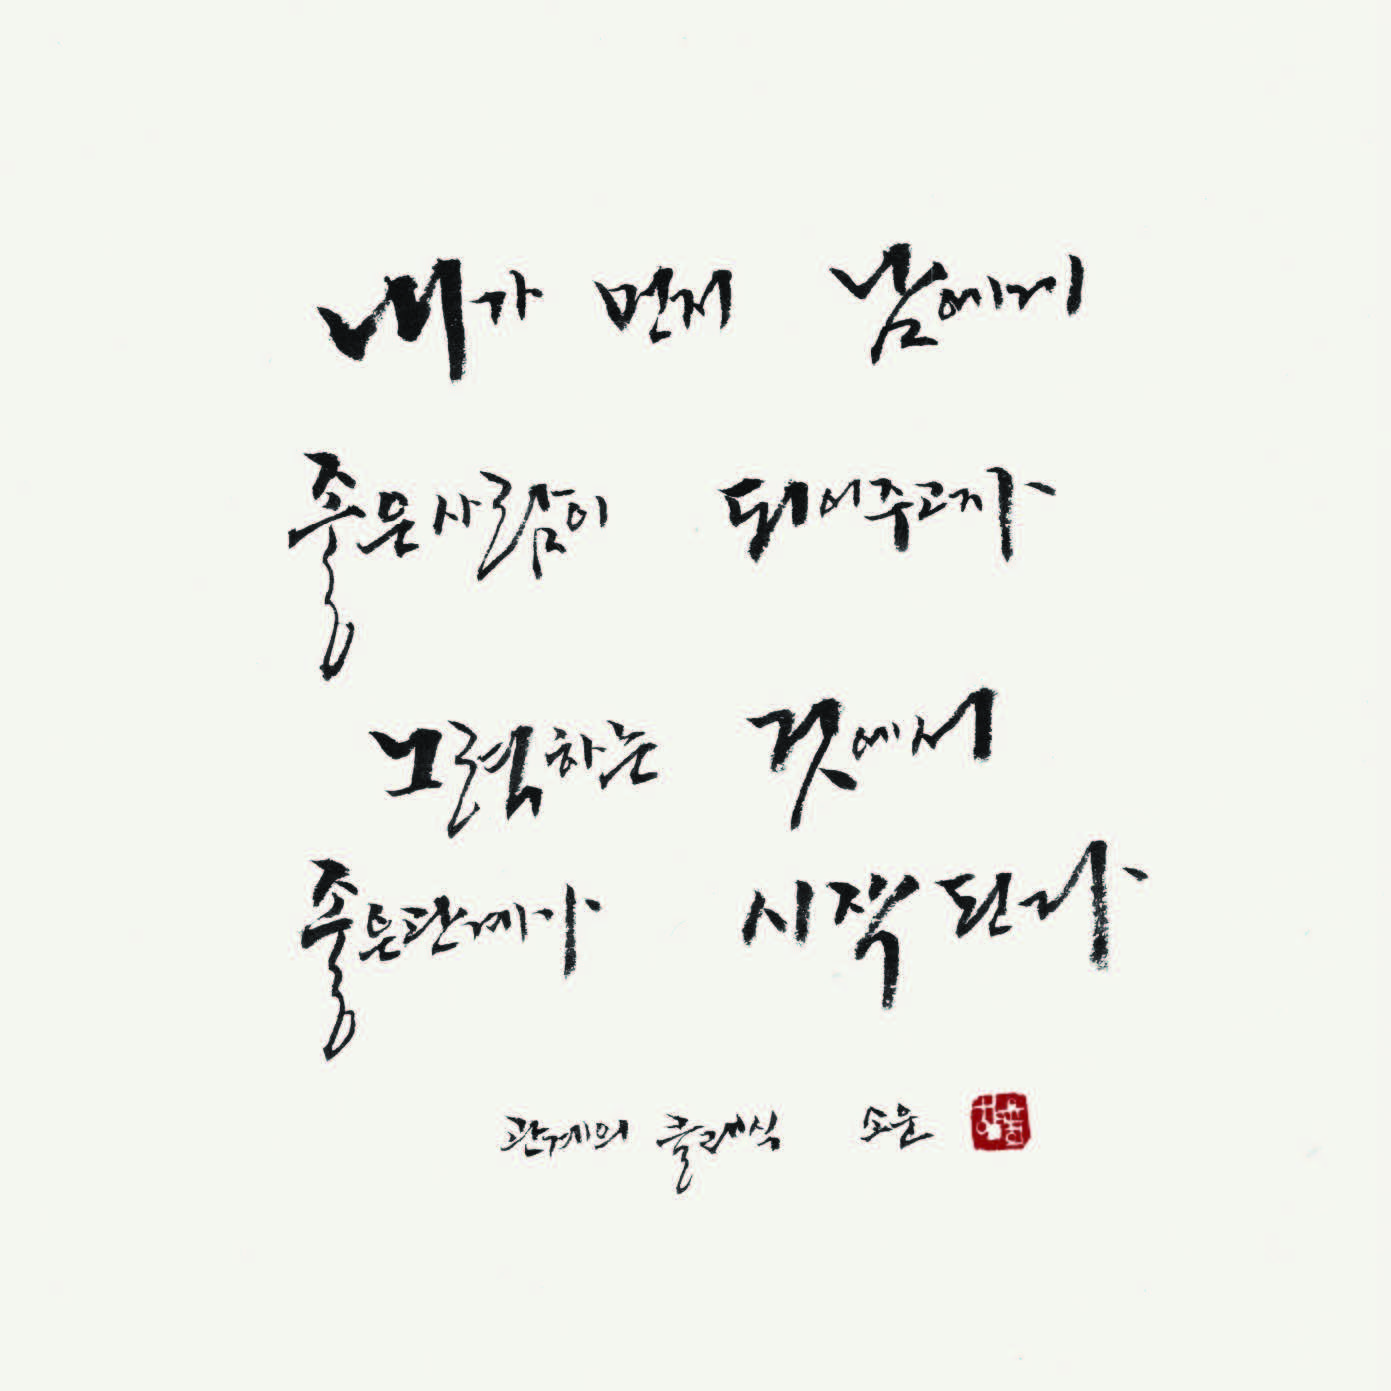 내가 먼저 남에게
좋은사람이 되어주고자
노력하는 것에서
좋은관계가 시작된다
관계의 클래식 소운